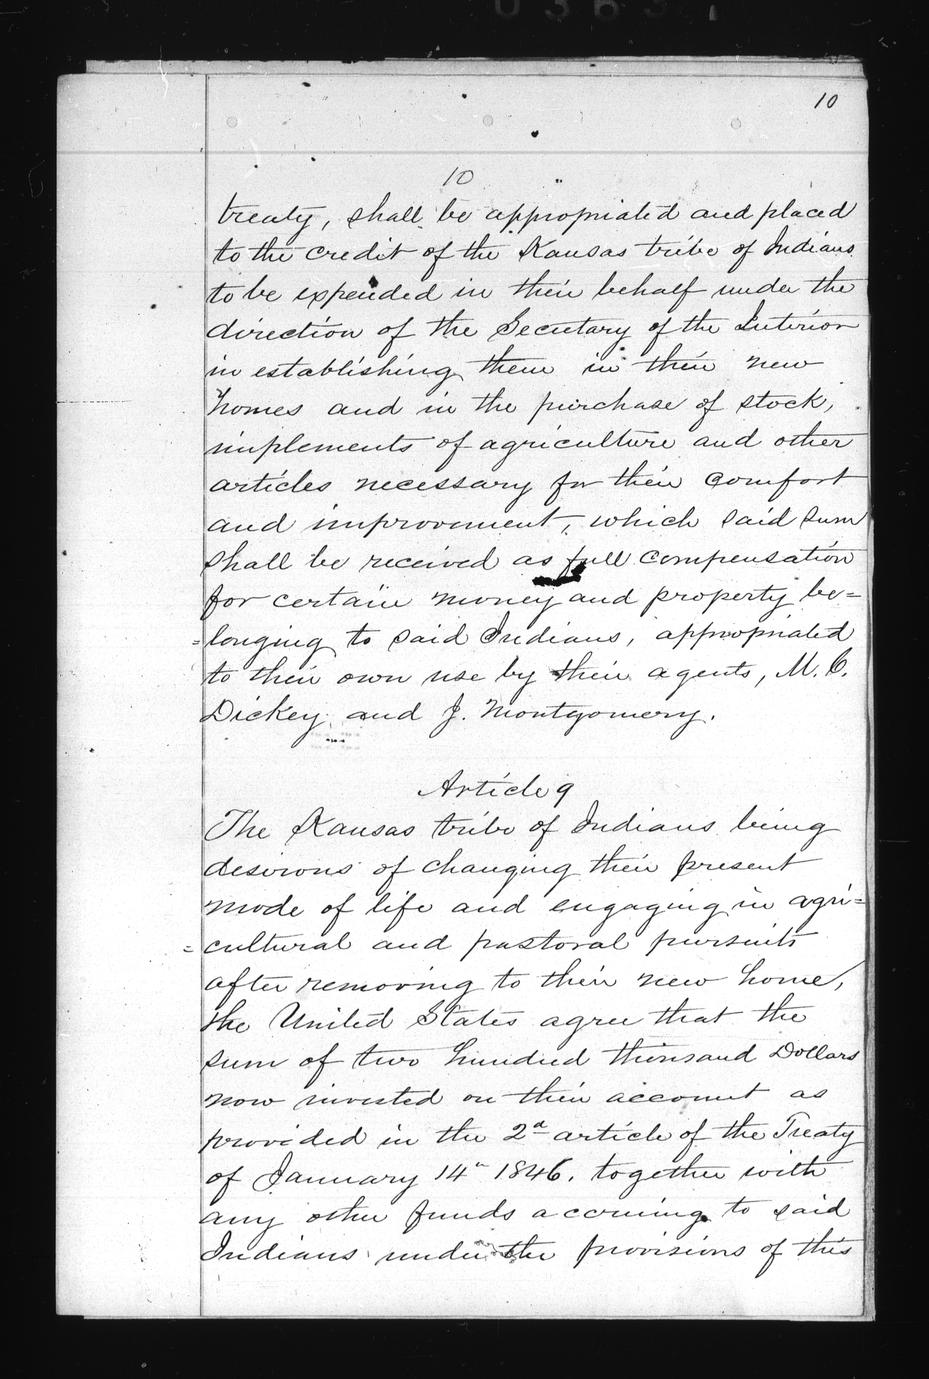 10
10
treaty, shall be appropriated and placed
to the credit of the Kansas tribe of Indians
to be expended in their behalf under the
direction of the Secretary of the Interior
in establishing them in their new
homes and in the purchase of stock,
implements of agriculture and other
articles necessary for their comfort
and improvement, which said sum
shall be received as full compensation
for certain money and property be=
=longing to said Indians, appropriated
to their own use by their agents, M. C.
Dickey and J. Montgomery.
Article 9
The Kansas tribe of Indians being
desirous of changing their present
mode of life and engaging in agri=
=cultural and pastoral pursuits
after removing to their new home,
the United States agree that the
sum of two hundred thousand Dollars
now invested on their account as
provided in the 2d article of the Treaty
of January 14" 1846. together with
any other funds accruing to said
Indians under the provisions of this